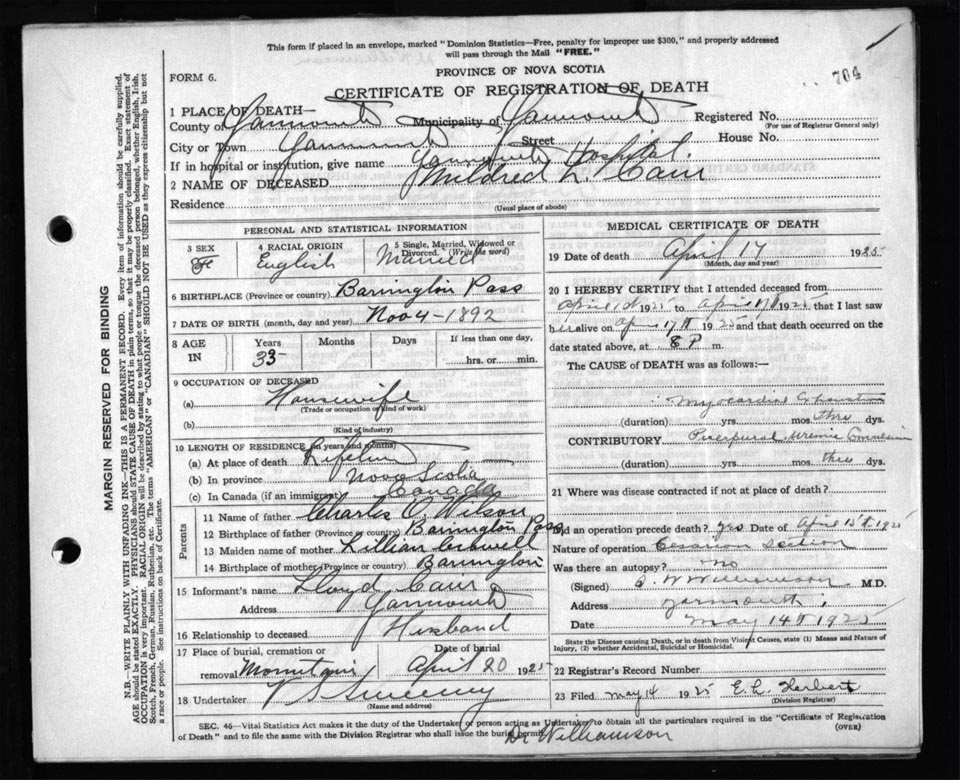 This form if placed in an envelope, marked "Dominion Statistics—Free, penalty for improper use $300," and properly addressed
will pass through the Mail "FREE."
PROVINCE OF NOVA SCOTIA
FORM 6.
CERTIFICATE OF REGISTRATION OF DEATH
704
1 PLACE OF DEATH—
County of Yarmouth Municipality of Yarmouth Registered No.
(For use of Registrar General only)
City or Town Yarmouth Street House No.
If in hospital or institution, give name Yarmouth Hospital.
2 NAME OF DECEASED Mildred L. Cain
Residence
(Usual place of abode)
PERSONAL AND STATISTICAL INFORMATION
3 SEX F
4 RACIAL ORIGIN English
5 Single, Married, Widowed or Divorced. (Write the word) Married
6 BIRTHPLACE (Province or country) Barrington Pass
7 DATE OF BIRTH (month, day and year) Nov 4-1892
8 AGE IN Years 33 Months Days If less than one day, hrs. or min.
9 OCCUPATION OF DECEASED
(a) Housewife
(Trade or occupation or kind of work)
(b)
(Kind of industry)
10 LENGTH OF RESIDENCE (in years and months)
(a) At place of death Lifetime
(b) In province Nova Scotia
(c) In Canada (if an immigrant) Canada
Parents
11 Name of father Charles O. Wilson
12 Birthplace of father (Province or country) Barrington Pass
13 Maiden name of mother Lillian
14 Birthplace of mother (Province or country) Barrington
15 Informant's name Lloyd Cain
Address Yarmouth
16 Relationship to deceased Husband
17 Place of burial, cremation or removal Mountain Date of burial April 20 1925
18 Undertaker V S Sweeny
(Name and address)
MEDICAL CERTIFICATE OF DEATH
19 Date of death April 17 1925
(Month, day and year)
20 I HEREBY CERTIFY that I attended deceased from
April 1st 1925 to April 17th 1925 that I last saw
her alive on April 17th 1925 and that death occurred on the
date stated above, at 8 P m.
The CAUSE of DEATH was as follows:—
Myocardial Exhaustion
(duration) yrs. mos. three dys.
CONTRIBUTORY Puerperal Uremic Convulsion
(duration) yrs. mos. three dys.
21 Where was disease contracted if not at place of death?
Did an operation precede death? yes Date of April 15th 1925
Nature of operation Cesarian Section
Was there an autopsy? no
(Signed) Williamson M.D.
Address Yarmouth
Date May 14th 1925
State the Disease causing Death, or in death from Violent Causes, state (1) Means and Nature of
Injury, (2) whether Accidental, Suicidal or Homicidal.
22 Registrar's Record Number
23 Filed May 14 1925 E. L. Herbert
(Division Registrar)
SEC. 46—Vital Statistics Act makes it the duty of the Undertaker or person acting as Undertaker to obtain all the particulars required in the "Certificate of Registration
of Death" and to file the same with the Division Registrar who shall issue the burial permit.
(OVER)
Dr Williamson
MARGIN RESERVED FOR BINDING
N.B.—WRITE PLAINLY WITH UNFADING INK—THIS IS A PERMANENT RECORD. Every item of information should be carefully supplied.
AGE should be stated EXACTLY. PHYSICIANS should STATE CAUSE OF DEATH in plain terms, so that it may be properly classified. Exact statement of
OCCUPATION is very important. RACIAL ORIGIN will be described by stating to what people or tongue the deceased person belonged, whether English, Irish,
Scotch, French, German, Russian, Ruthenian, etc. The terms "AMERICAN" or "CANADIAN" SHOULD NOT BE USED as they express citizenship but not
a race or people. See instructions on back of Certificate.